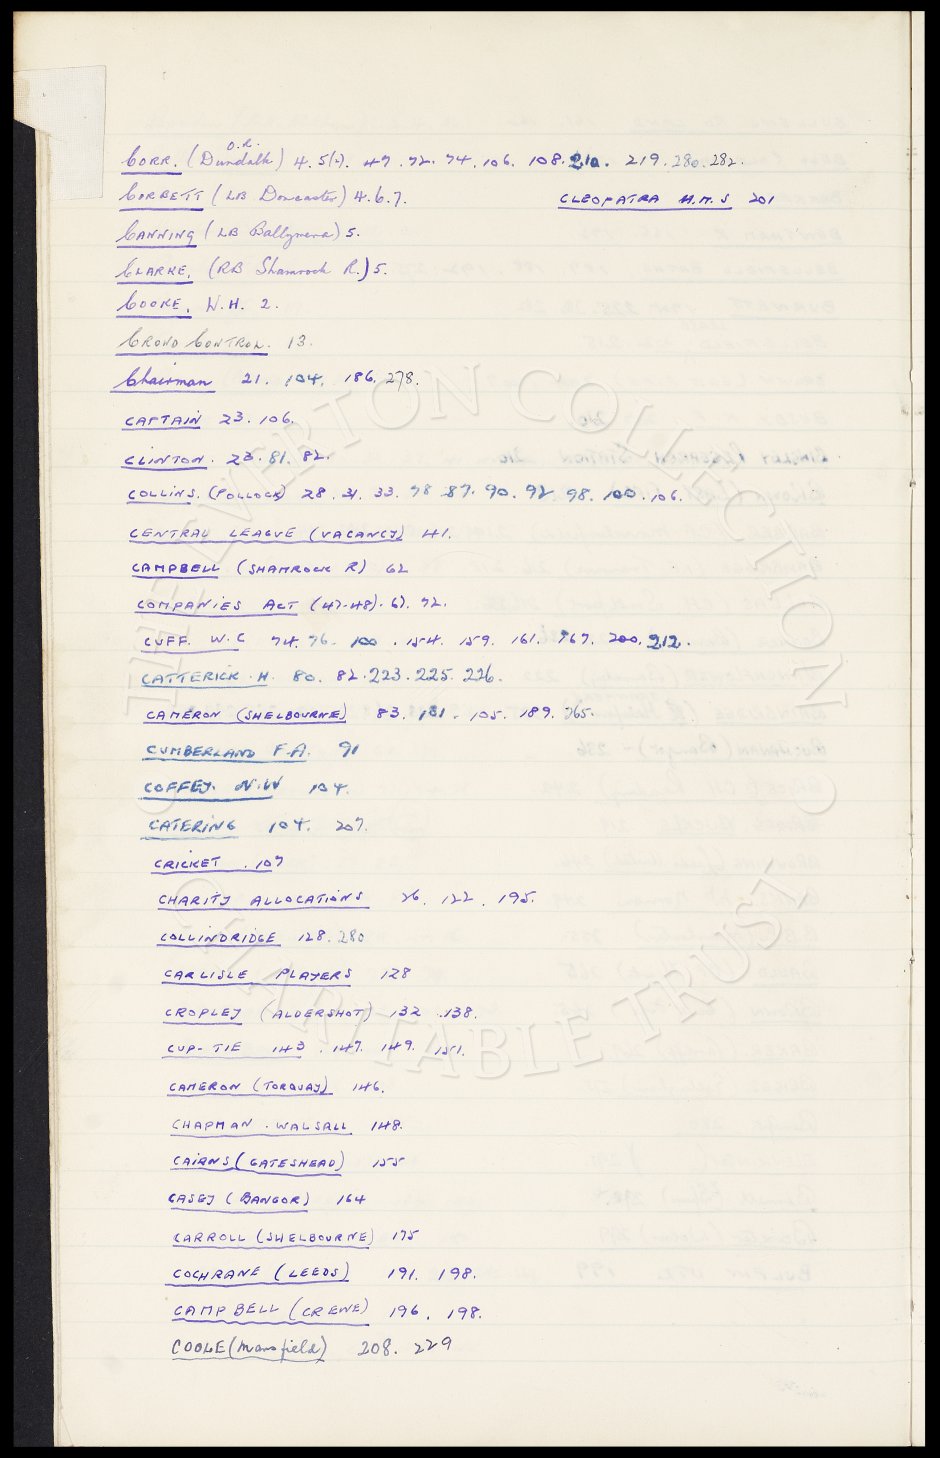 O.R.
CORR. (Dundalk) 4. 5(2). 47. 72. 74. 106. 108. 210. 219. 280. 282.
CORBETT (LB Doncaster) 4. 6. 7.
CLEOPATRA H.M.S 201
CANNING (LB Ballymena) 5.
CLARKE. (RB Shamrock R.) 5.
COOKE. W.H. 2.
CROWD CONTROL. 13.
Chairman 21. 104. 186. 278.
CAPTAIN 23. 106.
CLINTON. 23. 81. 82.
COLLINS. (POLLOCK) 28. 31. 33. 78 87. 90. 92 98. 100. 106.
CENTRAL LEAGUE (VACANCY) 41.
CAMPBELL (SHAMROCK R) 62
COMPANIES ACT (47-48). 67. 72.
CUFF. W.C 74. 76. 100. 154. 159. 161. 167. 200. 212.
CATTERICK. H. 80. 82. 223. 225. 226.
CAMERON (SHELBOURNE) 83. 101. 105. 189. 265.
CUMBERLAND F.A. 91
COFFEY. N.W 104.
CATERING 104. 207.
CRICKET. 107
CHARITY ALLOCATIONS 26. 122. 195.
COLLINDRIDGE 128. 280
CARLISLE PLAYERS 128
CROPLEY (ALDERSHOT) 132. 138.
CUP-TIE 143. 147. 149. 151.
CAMERON (TORQUAY) 146.
CHAPMAN. WALSALL 148.
CAIRNS (GATESHEAD) 155
CASEY (BANGOR) 164
CARROLL (SHELBOURNE) 175
COCHRANE (LEEDS) 191. 198.
CAMPBELL (CREWE) 196. 198.
COOLE (Mansfield) 208. 229
THE EVERTON COLLECTION CHARITABLE TRUST